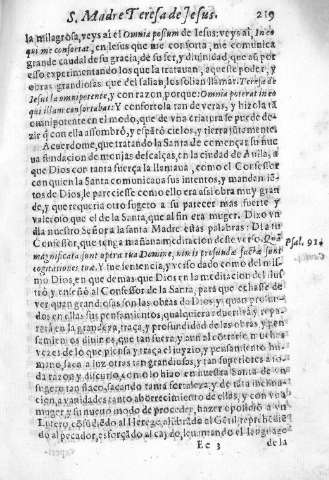 S. Madre Teresa de Iesus. 219
la milagrosa, veys ai el Omnia possum de Iesus: veys ai, In eo
qui me confortat, en Iesus que me conforta, me comunica
grande caudal de su gracia, de su ser, y diuinidad, que aũ por
esso experimentando los que la tratauan, aquesse poder, y
obras grandiosas que del salian, les solian llamar: Teresa de
Iesus la omnipotente, y con razon, porque: Omnia poterat in eo
qui illam confortabat: Y confortola tan de veras, y hizola tã
omnipotente en el modo, que de vna criatura se puede de-
zir, q̃ con ella assombrò, y espãtò cielos, y tierra jũtamente.
Acuerdome, que tratando la Santa de començar su nue
ua fundacion de monjas descalças, en la ciudad de Auila, a
que Dios con tanta fuerça la llamaua, como el Confessor
con quien la Santa comunicaua sus intentos, y mandamiẽ-
tos de Dios, le pareciesse como ello era assi obra muy gran
de, y que requeria otro sugeto a su parecer mas fuerte y
valeroso que el de la Santa, que al fin era muger. Dixo vn
dia nuestro Señora la santa Madre estas palabras: Di a tu
Confessor, que tenga mañana meditacion deste verso: Quã
magnificata sunt opera tua Domine, nimis profundæ factæ sunt
Psal. 91.
cogitationes tuæ. Y fue sentencia, y verso dado como del mis-
mo Dios, en que demas que Dios en la meditacion del ilus
trò, y enseñò al Confessor de la Santa, para que echasse de
ver quan grandiosas son las obras de Dios, y quan profun-
dos en ellas sus pensamientos, qualquiera aduertirà, y repa-
rarà en la grandeza, traça, y profundidad de las obras y pen-
samientos diuinos, que tan fuera, y aun al cõtrario muchas
vezes de lo que piensa y traça el iuyzio, y pensamiento hu-
mano, saca a luz otras tan grandiosas, y tan superiores a to-
da razon, y discurso, como lo hizo en nuestra Santa de vn
sugeto tan flaco, sacando tanta fortaleza, y de tãta inclina-
cion, a vanidades tanto aborrecimiento de ellas, y con vna
muger, y su nueuo modo de proceder, hazer oposicion a vn
Lutero, cõfũdiẽdo al Herege, alũbrãdo al Gẽtil, reprehẽdiẽ
do al pecador, esforçãdo al caydo, leuantando el lenguage
Ee 3 de la